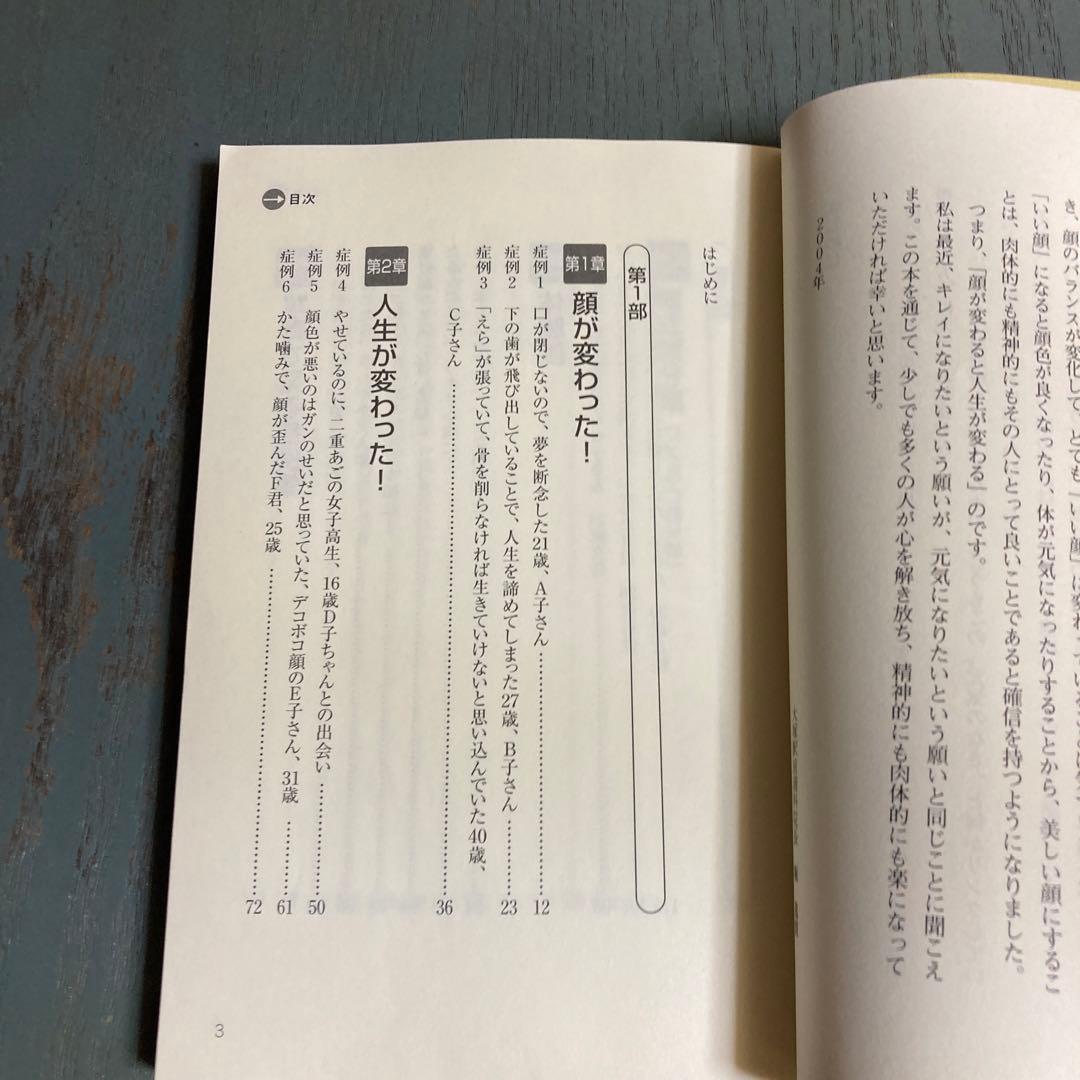 き、顔のバランスが変化して、とても「いい顔」に変わ
「いい顔」になると顔色が良くなったり、体が元気になったりすることから、美しい顔にするこ
とは、肉体的にも精神的にもその人にとって良いことであると確信を持つようになりました。
つまり、「顔が変わると人生が変わる」のです。
私は最近、キレイになりたいという願いが、元気になりたいという願いと同じことに聞こえ
ます。この本を通じて、少しでも多くの人が心を解き放ち、精神的にも肉体的にも楽になって
いただければ幸いと思います。
2004年
目次
はじめに
第1部
第1章 顔が変わった!
症例1 口が閉じないので、夢を断念した21歳、A子さん……12
症例2 下の歯が飛び出していることで、人生を諦めてしまった27歳、B子さん……23
症例3 「えら」が張っていて、骨を削らなければ生きていけないと思い込んでいた40歳、
C子さん……36
第2章 人生が変わった!
症例4 やせているのに、二重あごの女子高生、16歳D子ちゃんとの出会い……50
症例5 顔色が悪いのはガンのせいだと思っていた、デコボコ顔のE子さん、31歳……61
症例6 かた噛みで、顔が歪んだF君、25歳……72
3